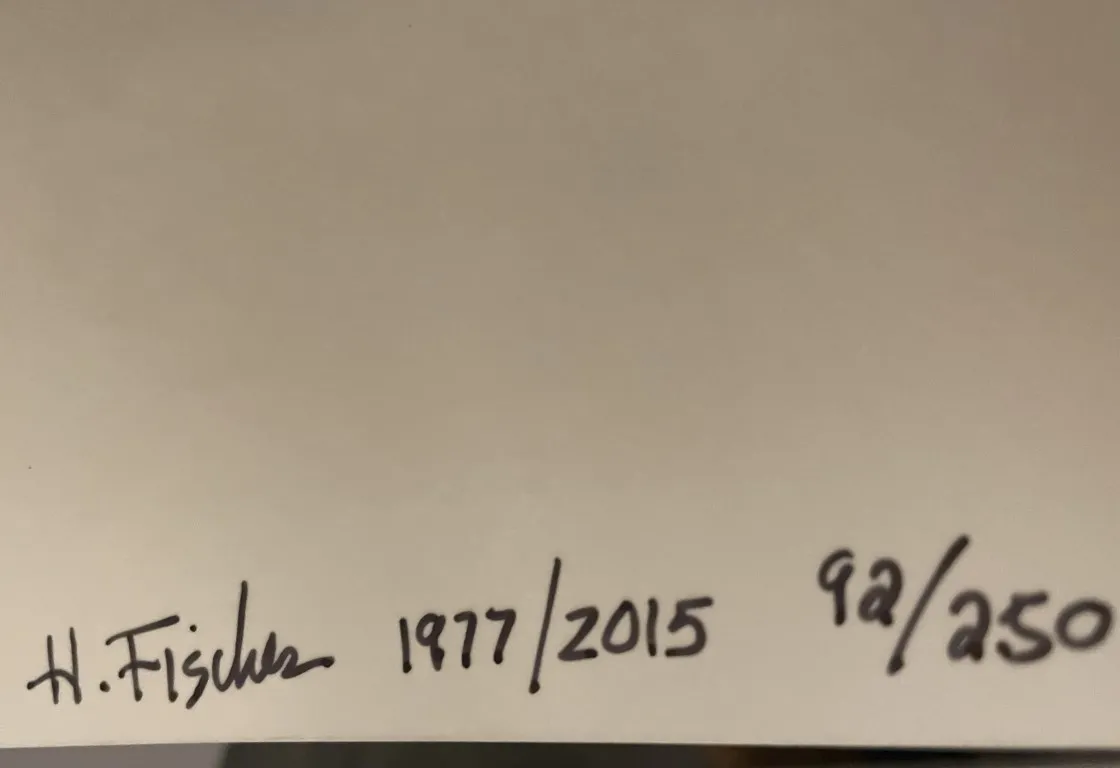 H. Fischer 1977/2015 92/250